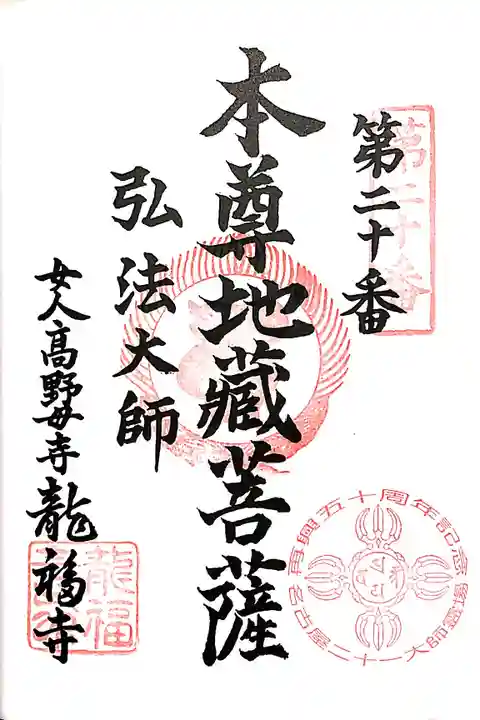 第二十番
第二十番
本尊地藏菩薩
弘法大師
女人高野母寺龍福寺
龍福
再興五十周年記念
名古屋二十一大師霊場